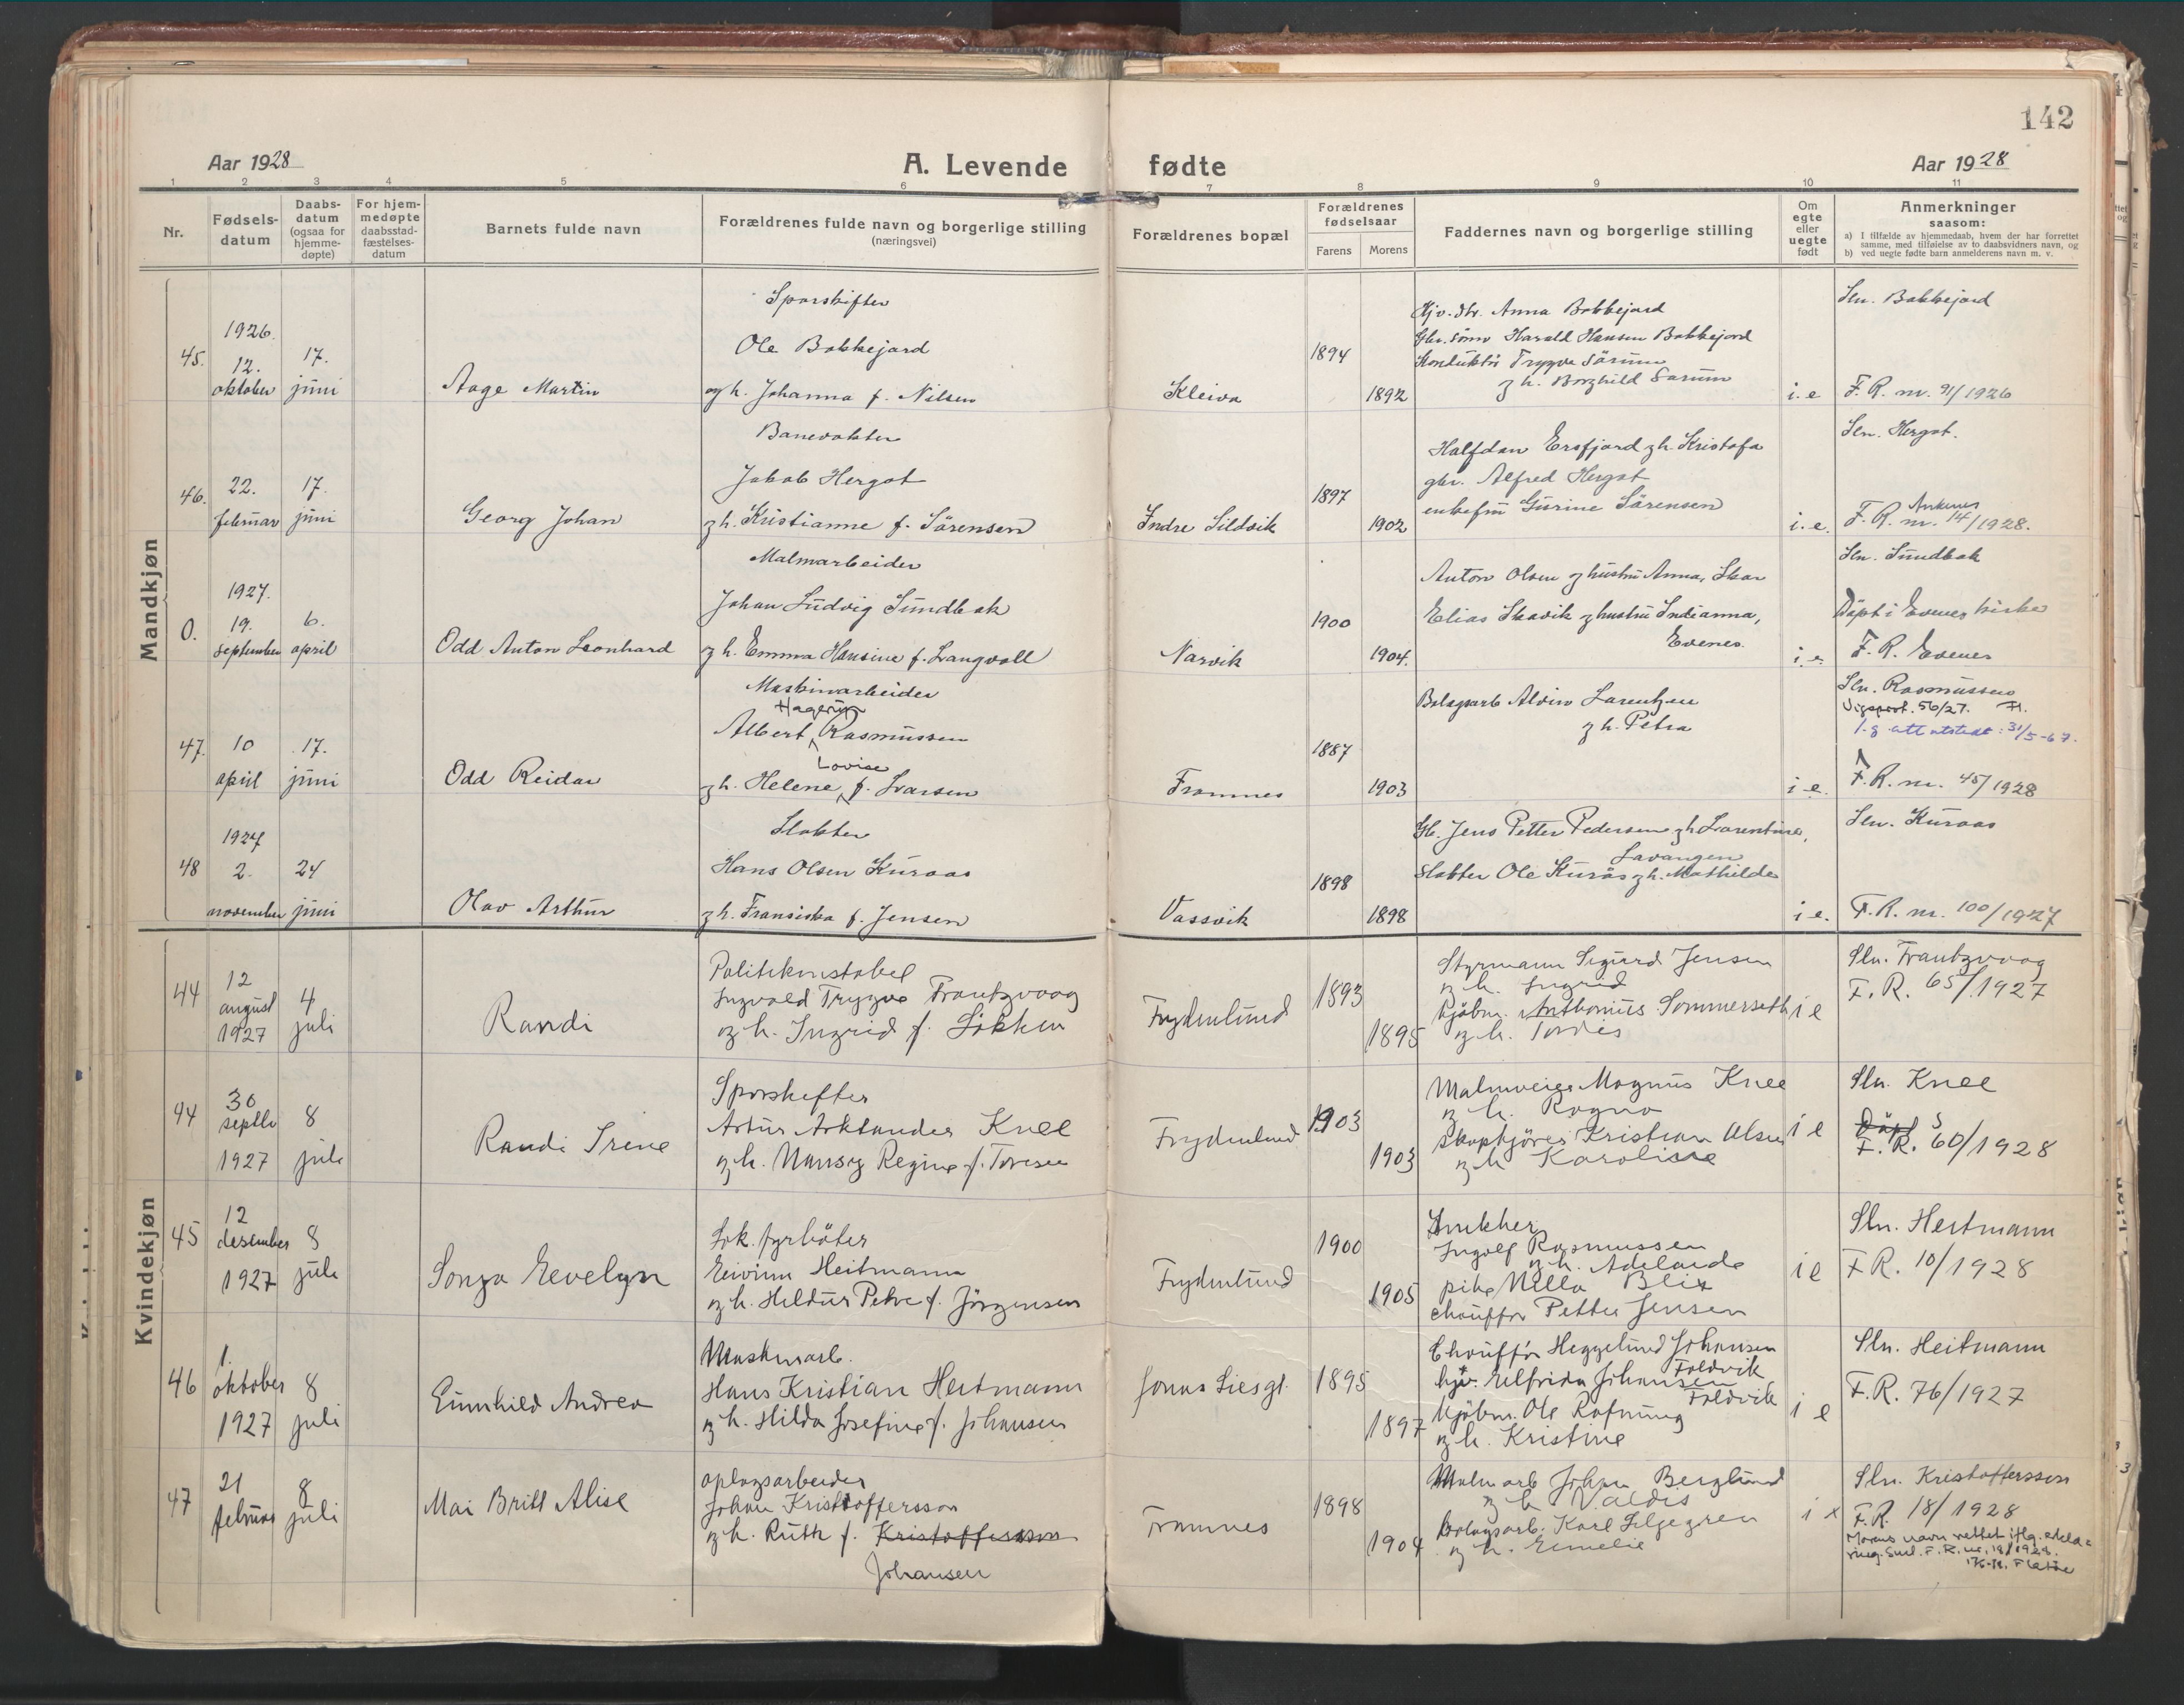 142
Aar 1928
A. Levende fødte
Aar 1928
1 2 3 4 5 6 7 8 9 10 11
Nr.
Fødsels-
datum
Daabs-
datum
(ogsaa for
hjemme-
døpte)
For hjem-
medøpte
daabsstad-
fæstelses-
datum
Barnets fulde navn
Forældrenes fulde navn og borgerlige stilling
(næringsvei)
Forældrenes bopæl
Forældrenes
fødselsaar
Farens Morens
Faddernes navn og borgerlige stilling
Om
egte
eller
uegte
født
Anmerkninger
saasom:
a) I tilfælde av hjemmedaab, hvem der har forrettet
samme, med tilføielse av to daabsvidners navn, og
b) ved uegte fødte barn anmelderens navn m. v.
Mandkjøn
45.
1926.
12.
oktober
17.
juni
Aage Martin
Sporskifter
Ole Bakkejord
og h. Johanna f. Nilsen
Kleiva
1894
1892
Anna Bakkejord
Gbr. sönn Harald Hansen Bakkejord
Konduktör Trygve Sörum
g h. Borghild Sörum
i. e
Sln. Bakkejord
F. R. nr. 91/1926
46.
22.
februar
17.
juni
Georg Johan
Banevokter
Jakob Hergot
g h. Kristianne f. Sörensen
Indre Sildvik
1897
1902
Halfdan Ersfjord g h. Kristofa
gbr. Alfred Hergot
enkefru Gurine Sörensen
i. e.
Sln. Hergot.
Ankenes
F. R. nr. 14/1928.
0.
1927.
19.
september
6.
april
Odd Anton Leonhard
Malmarbeider
Johan Ludvig Sundbak
g h. Emma Hansine f. Langvoll
Narvik
1900
1904.
Anton Olsen g hustru Anna, Skar
Elias Skavik g hustru Indianna,
Evenes.
i. e.
Sln. Sundbak
Döpt i Evenes kirke
F. R. Evenes
47.
10
april
17.
juni
Odd Reidar
Maskinarbeider
Hagerup
Albert Rasmussen
Lovise
g h. Helene f. Larsen
Framnes
1887
1903
Bolagsarb Alvin Larentzen
g h. Petra
i e.
Sln. Rasmussen
Vigsprot. 56/27. Fl.
f. g. att utstedt: 31/5-67.
F. R. nr. 45/1928
48
1927
2.
november
24
juni
Olav Arthur
Slakter
Hans Olsen Kuraas
g h. Fransiska f. Jensen
Vassvik
1898
1898
Gb. Jens Petter Pedersen g h Larentine,
Lavangen
Slakter Ole Kurås g h. Mathilde
i e.
Sln. Kuraas
F. R. nr. 100/1927
Kvindekjøn
44
12
august
1927
4
juli
Randi
Politikonstabel
Ingvald Trygve Frantzvaag
og h. Ingrid f. Lökken
Frydenlund
1893
1895
Styrmann Sigurd Jensen
og h. Ingrid
Kjöbm. Anthonius Sommerseth
og h. Tordis
i e
Sln. Frantzvaag
F. R. 65/1927
44
30
septbr
1927
8
juli
Randi Irene
Sporskifter
Artur Arktander Knee
og h. Nansy Regine f. Toresen
Frydenlund
1903
1903
Malmveier Magnus Knee
og h. Ragna
Kristian Olsen
og h Karoline
i e
Sln. Knee
Döpt
F. R. 60/1928
45
12
desember
1927
8
juli
Sonja Eevelyn
Lok. fyrböter
Eivinn Heitmann
og h. Hildur Petre f. Jörgensen
Frydenlund
1900
1905
Snekker
Ingolf Rasmussen
og h. Adelaide
pike Milla Blix
chauffør Petter Jensen
i e
Sln. Heitmann
F R. 10/1928
46
1.
oktober
1927
8
juli
Gunnhild Andrea
Maskinarb.
Hans Kristian Heitmann
og h. Hilda Josefine f. Johansen
Jonas Liesgt.
1895
1897
Chauffør Heggelund Johansen
Foldvik
Elfrida Johansen
Foldvik
Kjöbm. Ole Rafnung
og h. Kristine
i e
Sln. Heitmann
F. R. 76/1927
47
21
februar
8
juli
Mai Britt Alise
oplagsarbeider
Johan Kristoffersson
og h. Ruth f. Kristoffersson
Johansen
Framnes
1898
1904
Malmarb Johan Berglund
og h Valdis
Bolagsarb. Karl Liljegren
og h. Emelie
i e
Sln. Kristoffersson
F. R. 18/1928
Morens navn rettet iflg. erklæ-
ring. Sml. F. R. nr. 18/1928.